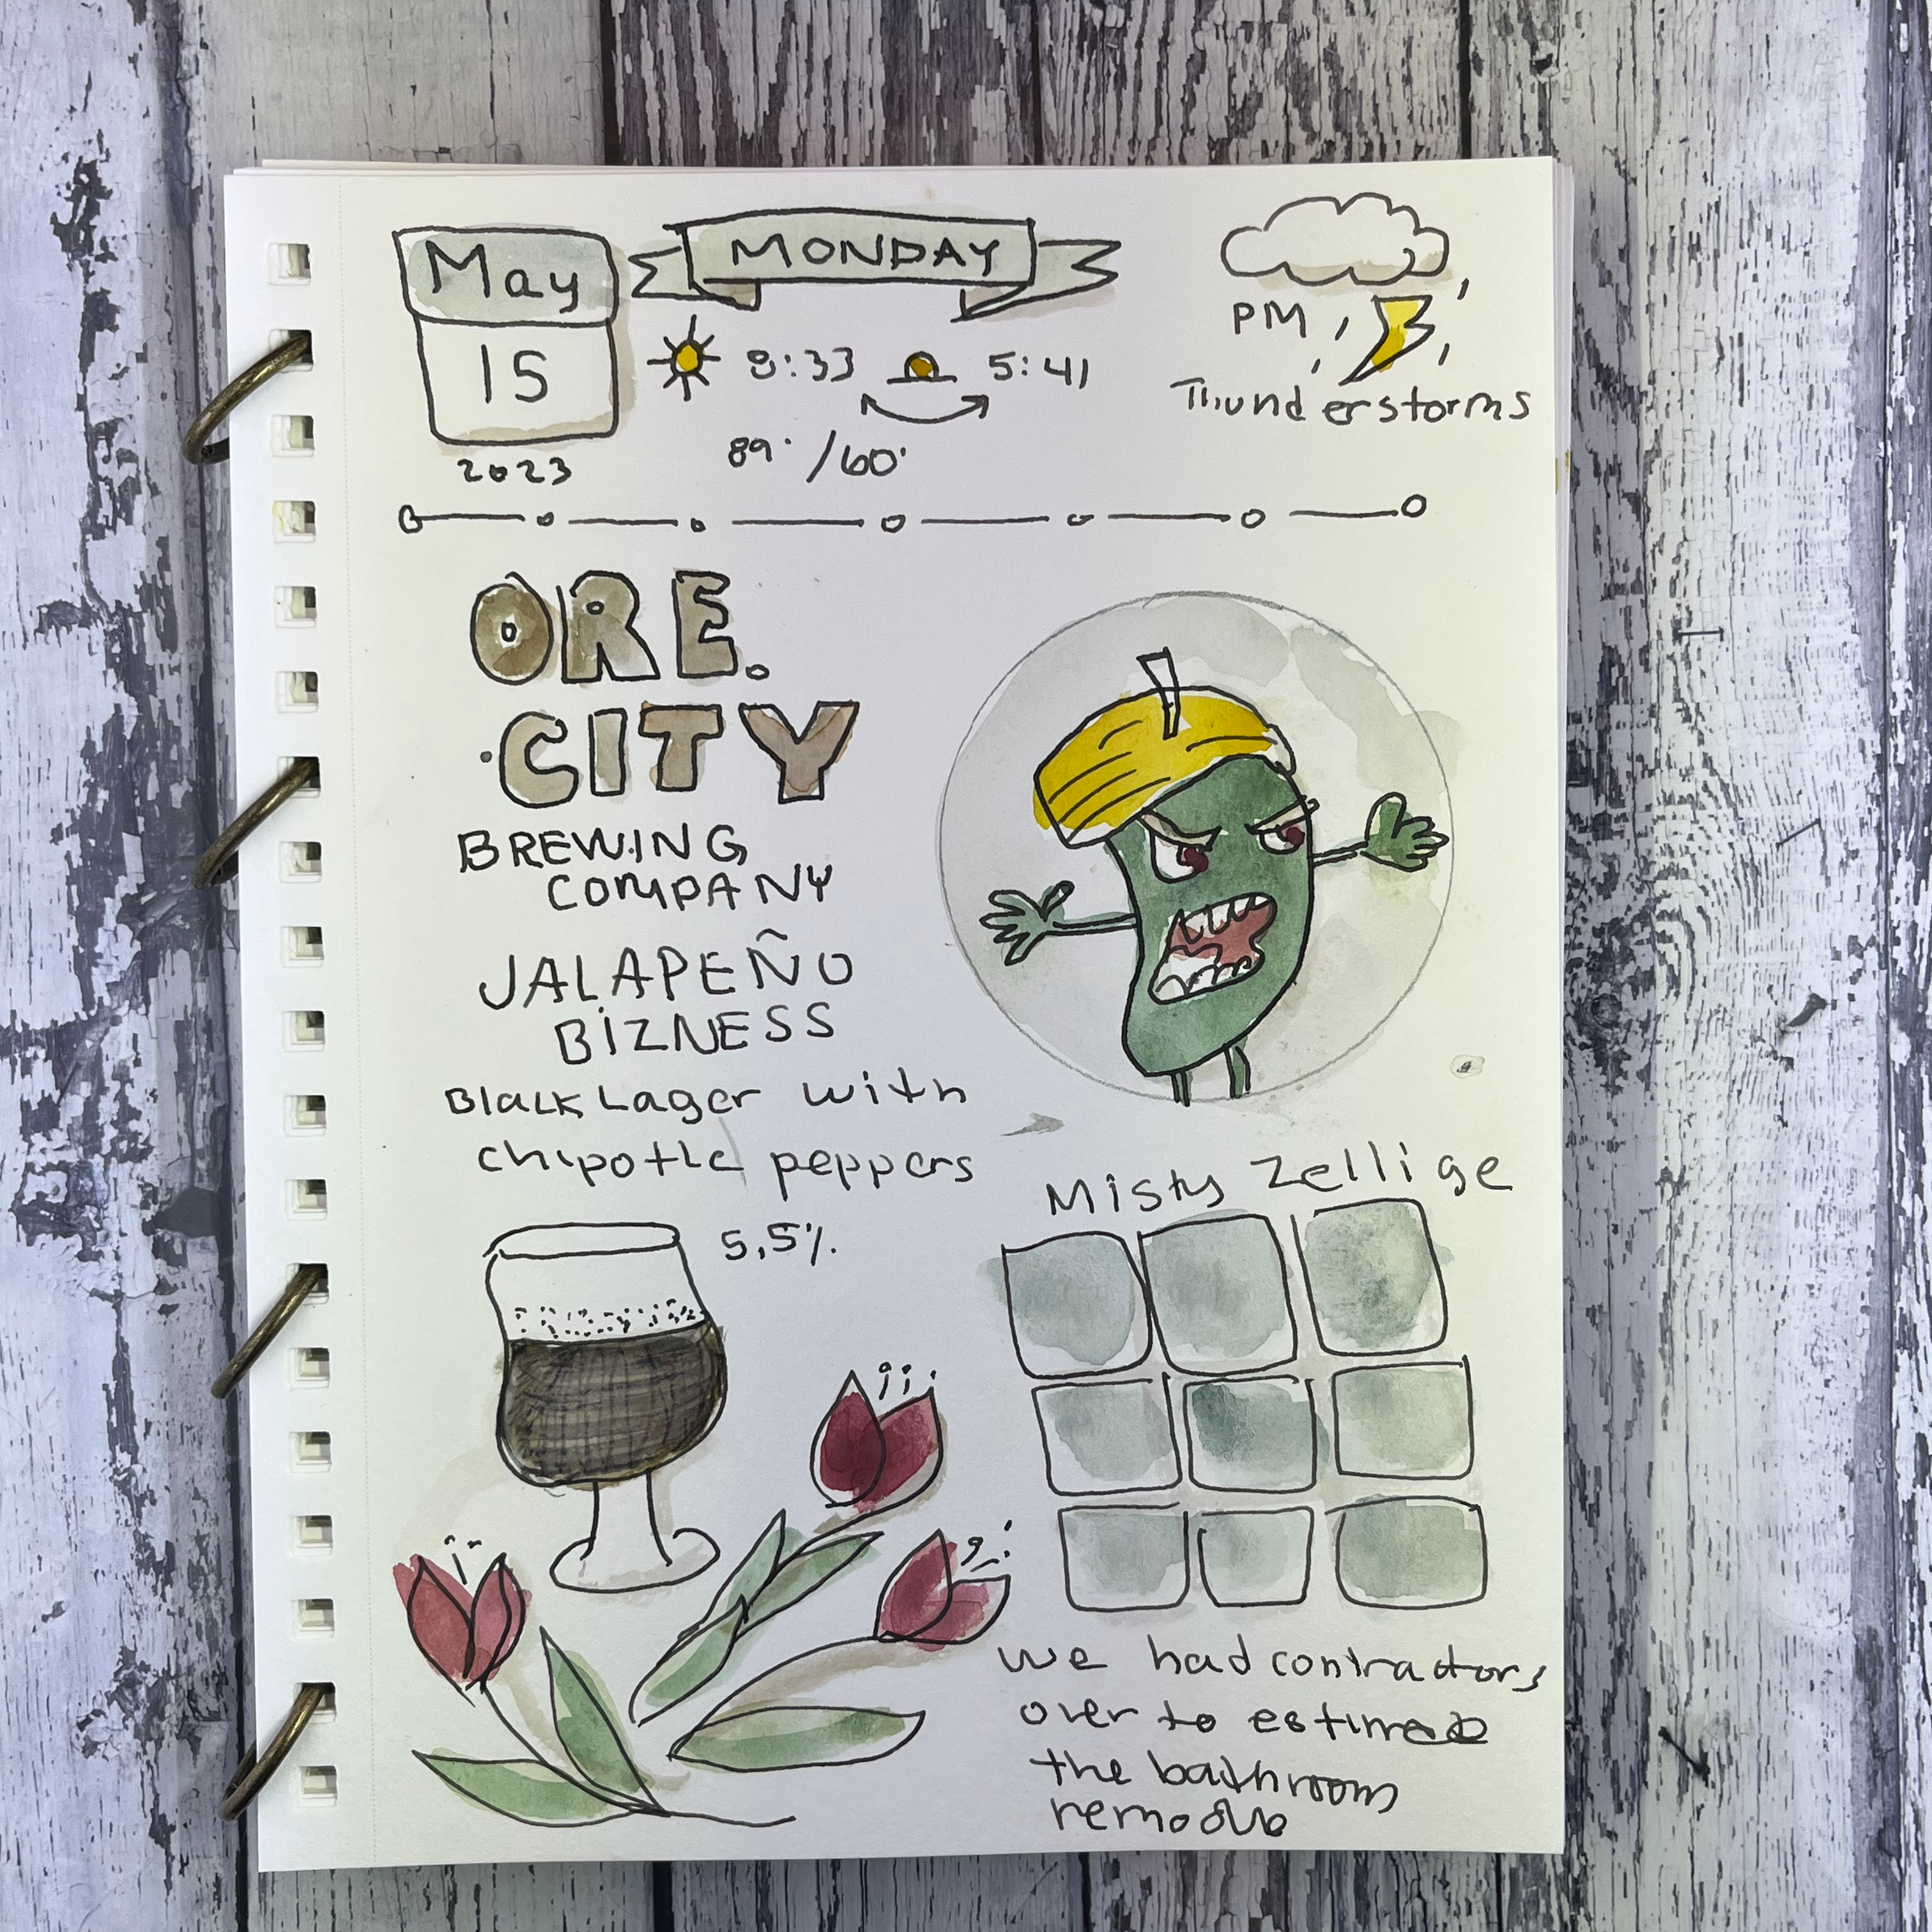 May
15
2023
MONDAY
8:33 5:41
89° /60°
PM
Thunderstorms
ORE.
CITY
BREWING
COMPANY
JALAPEÑO
BIZNESS
Black Lager with
chipotle peppers
5.5%
Misty Zellige
we had contractors
over to estimate
the bathroom
remodle